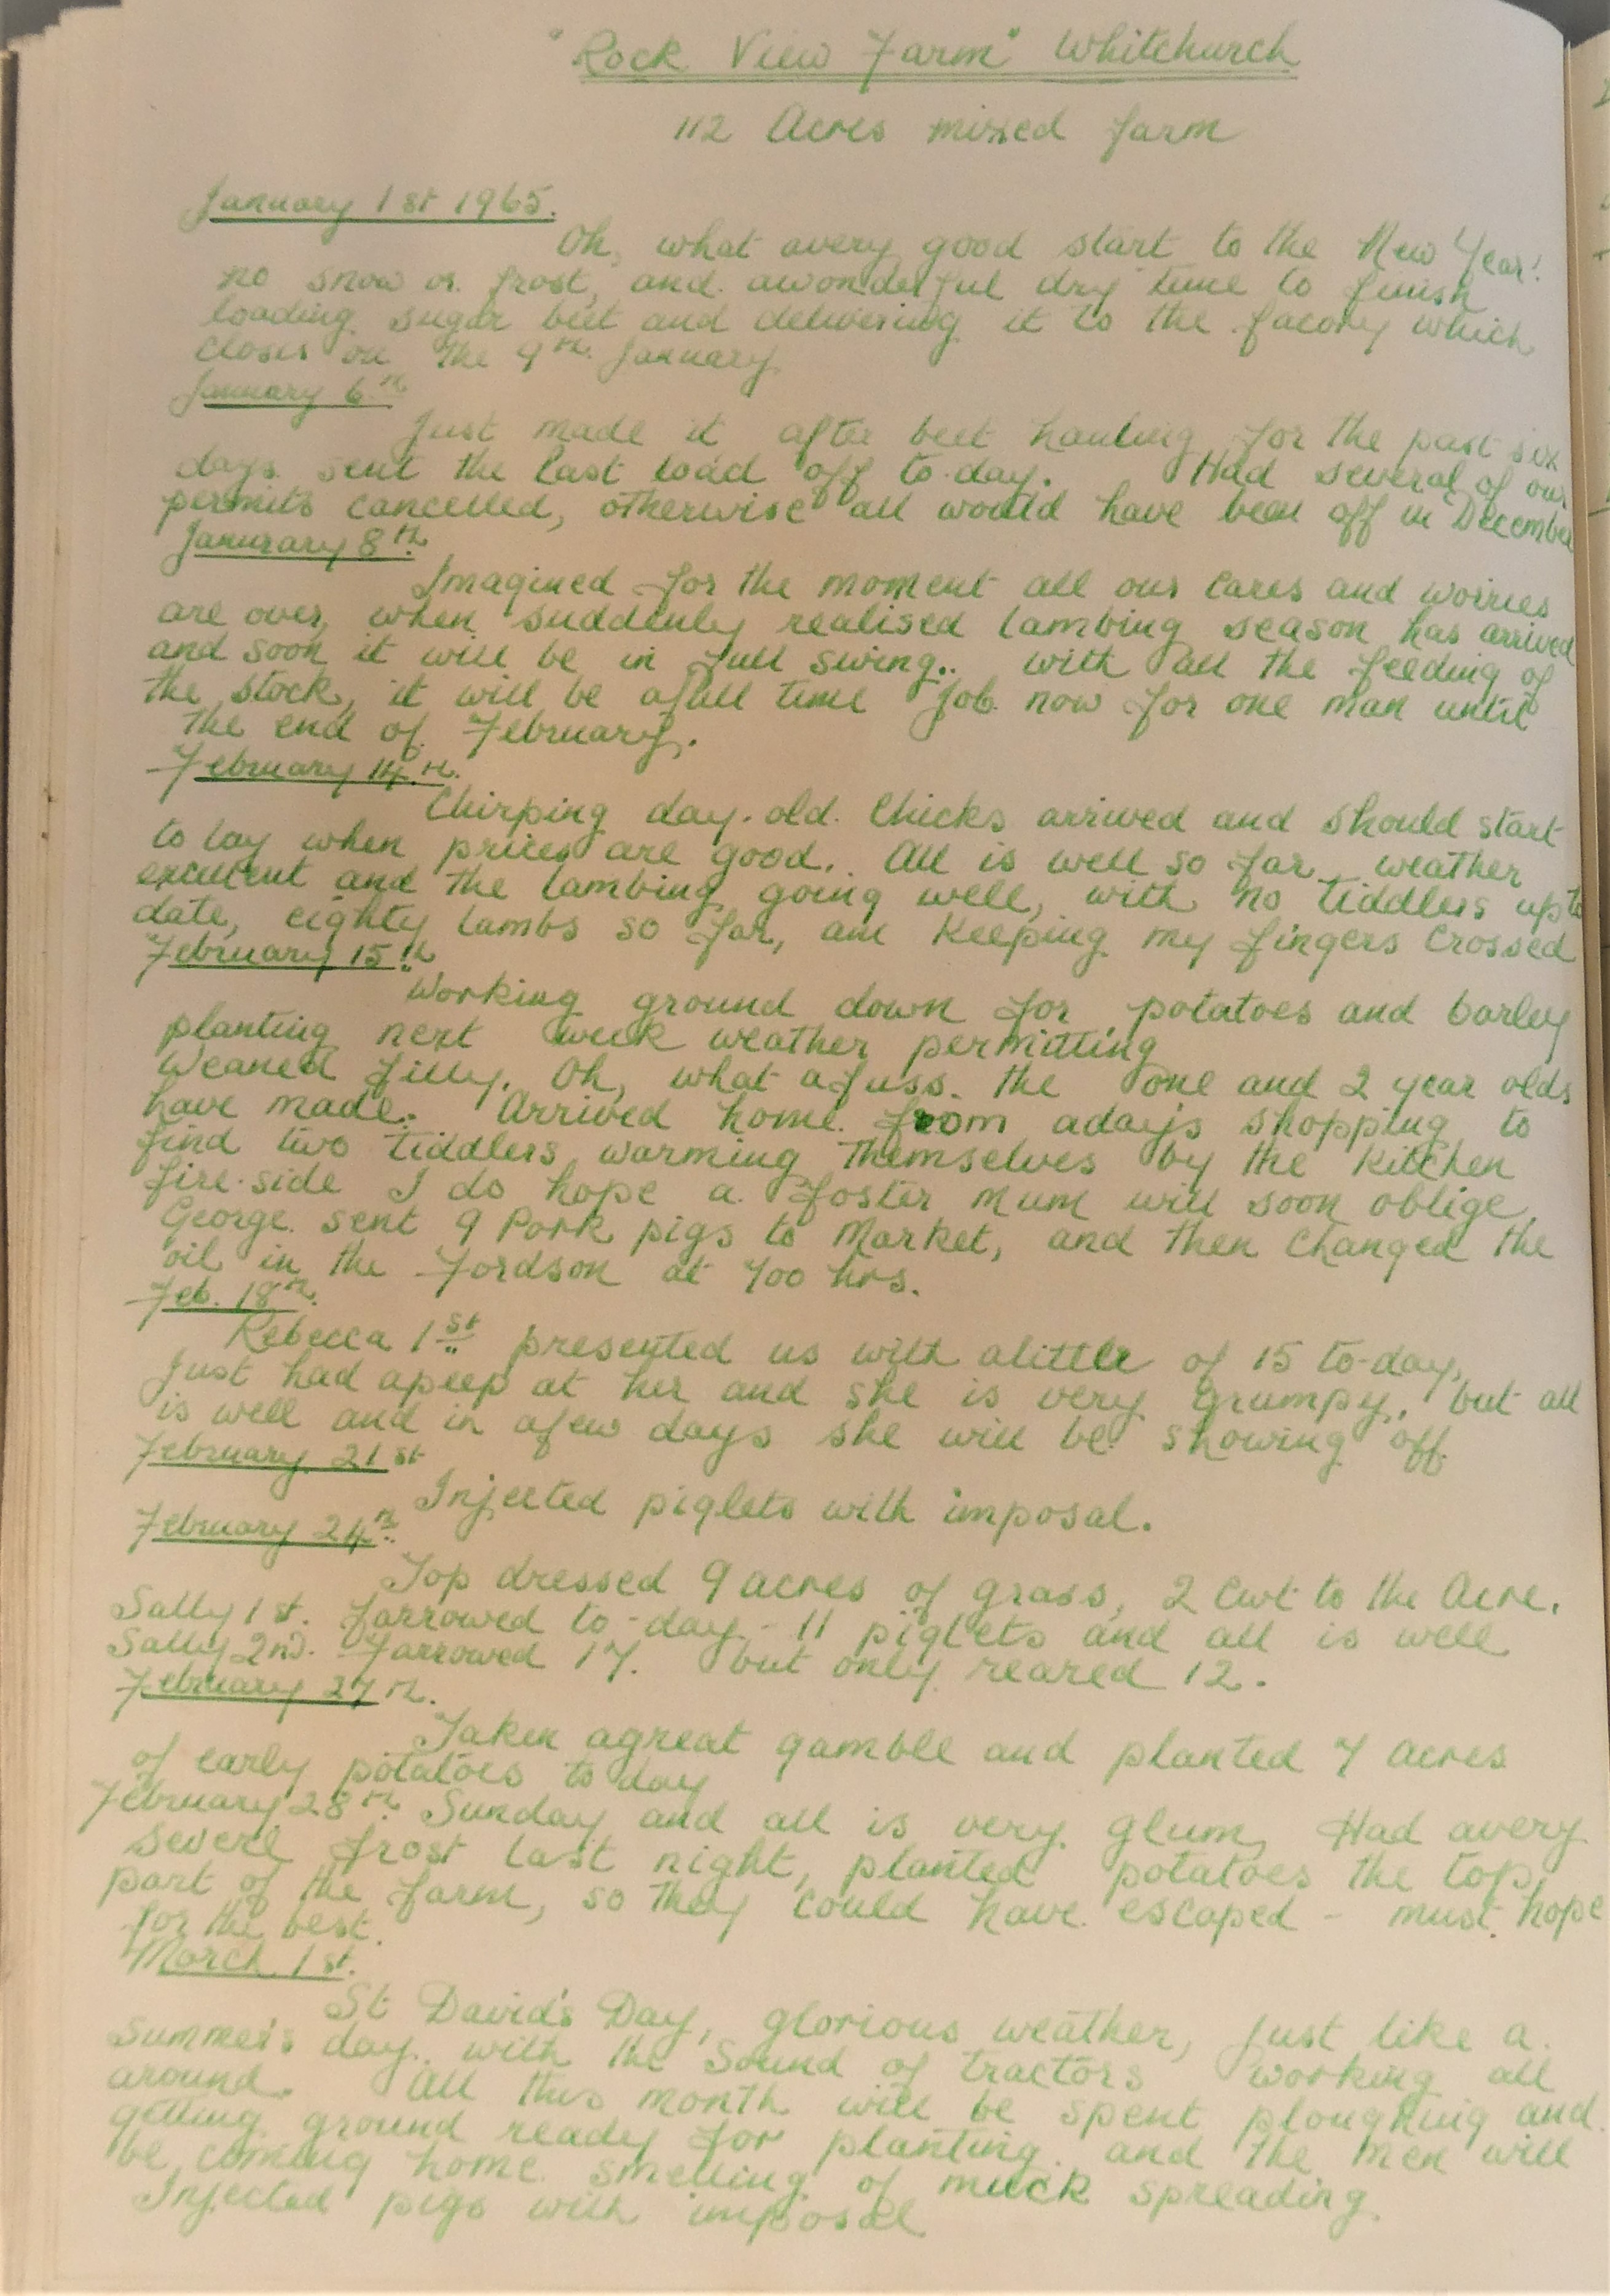 "Rock View Farm" Whitchurch
112 Acres mixed farm
January 1st 1965.
Oh, what avery good start to the New Year!
no snow or frost, and awonderful dry time to finish
loading sugar beet and delivering it to the facory which
closes on the 9th January
January 6th
Just made it after beet hauling for the past six
days. sent the last load off to-day. Had several of our
permits cancelled, otherwise all would have been off in December
Janurary 8th.
Imagined for the moment all our cares and worries
are over, when suddenly realised lambing season has arrived
and soon it will be in full swing.. with all the feeding of
the stock, it will be afull time job now for one man until
the end of February.
February 14th.
Chirping day-old. Chicks arrived and should start
to lay when prices are good. All is well so far weather
excellent and the lambing going well, with no tiddlers up to
date, eighty lambs so far, am keeping my fingers crossed
February 15th
Working ground down for potatoes and barley
planting next week weather permitting
Weaned filly. Oh, what afuss. the one and 2 year olds
have made. Arrived home from aday's shopping to
find two tiddlers warming themselves by the kitchen
fire-side I do hope a foster mum will soon oblige.
George sent 9 Pork pigs to Market, and then changed the
oil in the Fordson at 700 hrs.
Feb. 18th.
Rebecca 1st presented us with alitter of 15 to-day,
Just had apeep at her and she is very grumpy, but all
is well and in afew days she will be showing off.
February 21st
Injected piglets with imposal.
February 24th
Top dressed 9 acres of grass, 2 Cwt to the Acre.
Sally 1st. farrowed to-day - 11 piglets and all is well
Sally 2nd. Farrowed 17. but only reared 12.
February 27th.
Taken agreat gamble and planted 7 acres
of early potatoes to day
February 28th. Sunday and all is very glum, Had avery
severe frost last night, planted potatoes the top
part of the farm, so they could have escaped - must hope
for the best.
March 1st.
St David's Day, glorious weather, just like a
Summer's day. with the sound of tractors working all
around. All this month will be spent ploughing and
getting ground ready for planting. and the men will
be coming home smelling of muck spreading.
Injected pigs with imposal